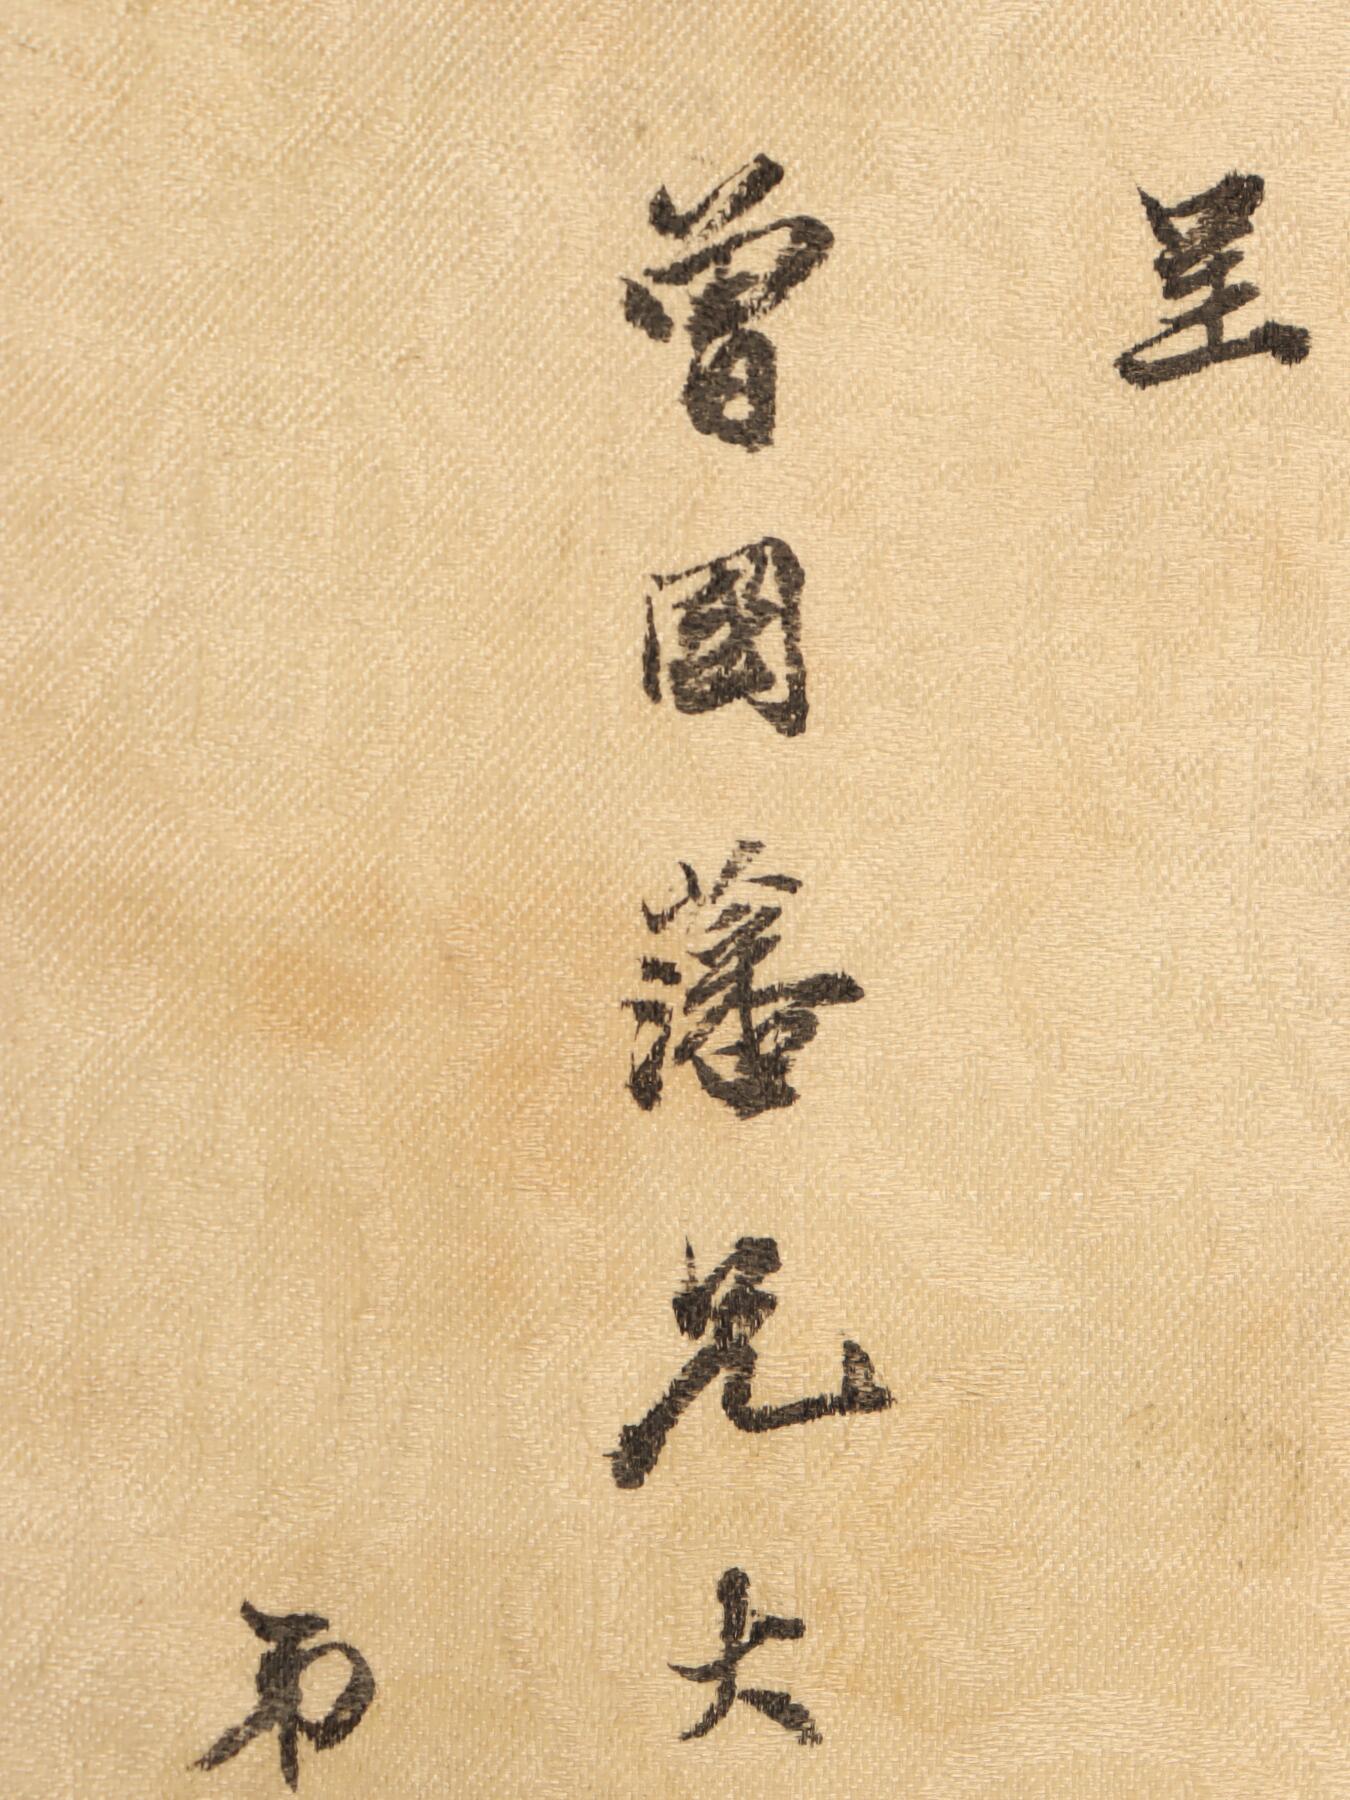 呈
曾國藩兄大
弟